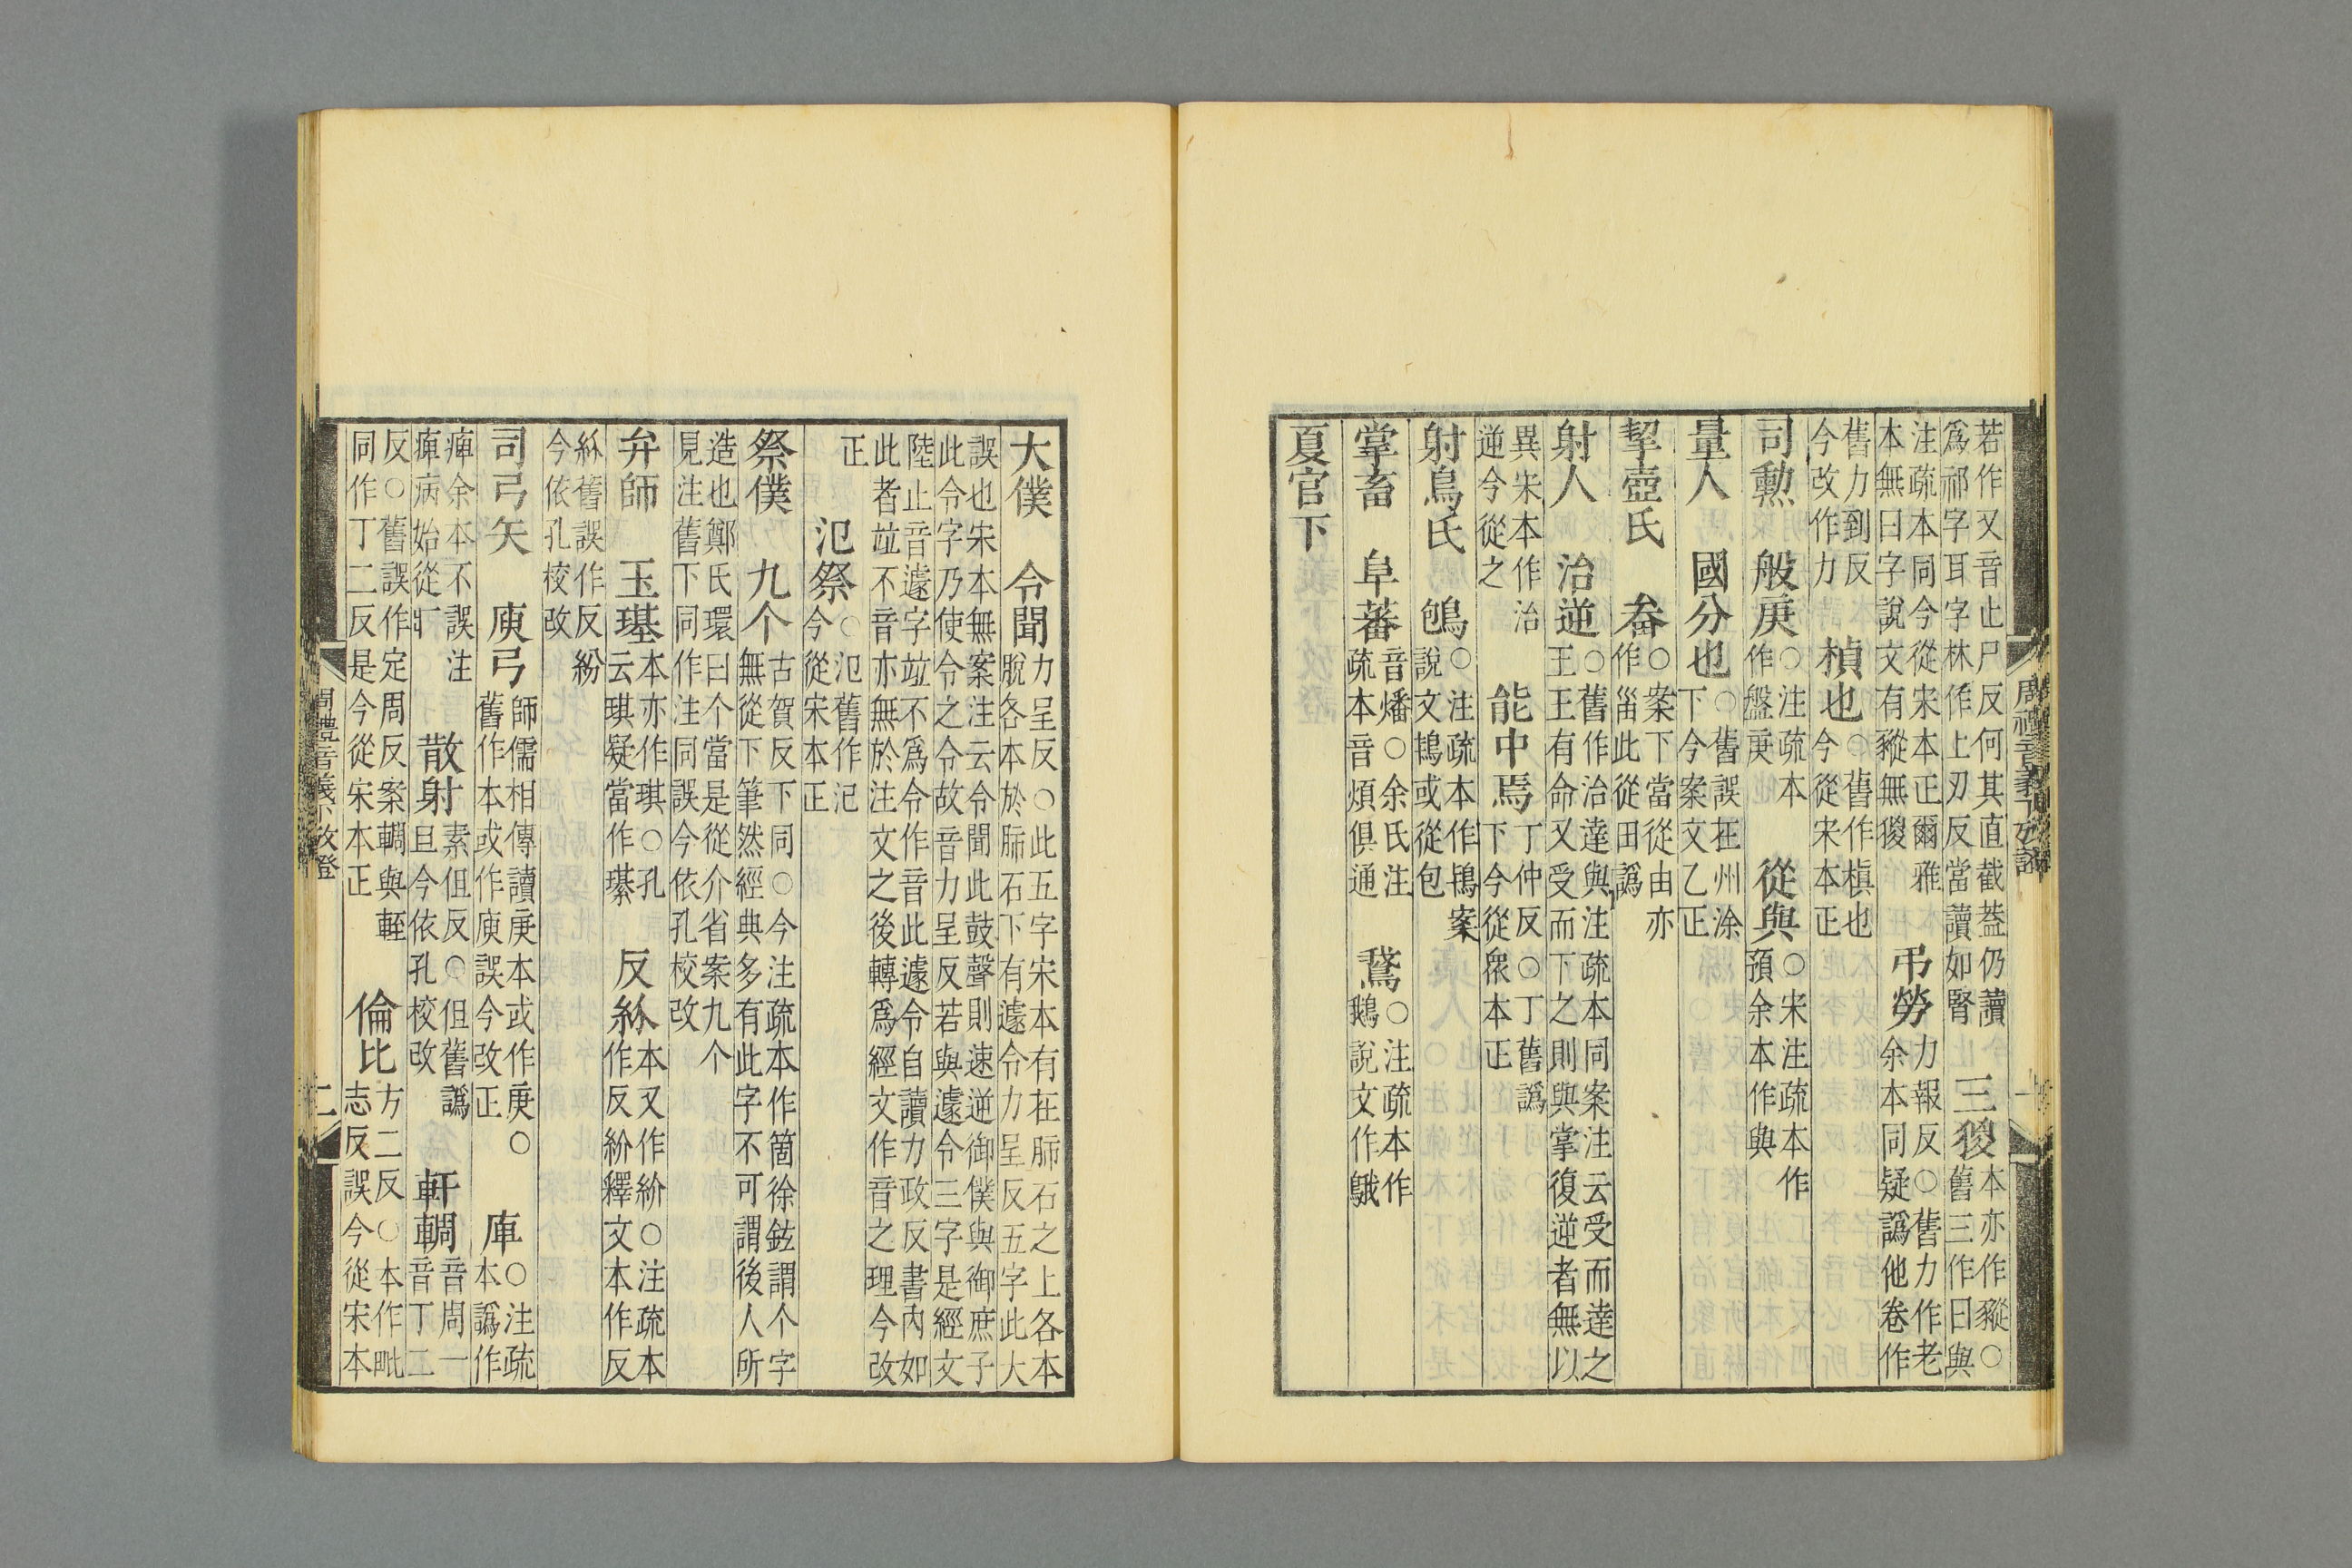 若作又音止尸反何其直截蓋仍讀
為祁字耳字林作上刃反當讀如腎
三猣
本亦作豵○
舊三作曰與
注疏本同今從宋本正爾雅
本無曰字說文有豵無猣
弔勞
力報反○舊力作老
余本同疑譌他卷作
舊力到反
今改作力
楨也
○舊作槙也
今從宋本正
司勲 般庚
○注疏本
作盤庚
從與
○宋注疏本作
預余本作與
量人 國分也
○舊誤在州涂
下今案文乙正
挈壺氏 畚
○案下當從由亦
作甾此從田譌
射人 治逆
○舊作治達與注疏本同案注云受而達之
王王有命又受而下之則與掌復逆者無以
異宋本作治
逆今從之
能中焉
丁仲反○丁舊譌
下今從衆本正
射鳥氏 䳈
○注疏本作鴇案
說文鴇或從包
掌畜 阜蕃
音燔○余氏注
疏本音煩俱通
鵞
○注疏本作
鵝說文作䳘
夏官下
大僕 令聞
力呈反○此五字宋本有在肺石之上各本
脫各本於肺石下有遽令力呈反五字此大
誤也宋本無案注云令聞此鼓聲則速逆御僕與御庶子
此令字乃使令之令故音力呈反若與遽令三字是經文
陸止音遽字竝不為令作音此遽令自讀力政反書內如
此者竝不音亦無於注文之後轉為經文作音之理今改
正
氾祭
○氾舊作汜
今從宋本正
祭僕 九个
古賀反下同○今注疏本作箇徐鉉謂个字
無從下筆然經典多有此字不可謂後人所
造也鄭氏環曰个當是從介省案九个
見注舊下同作注同誤今依孔校改
弁師 玉璂
本亦作琪○孔
云琪疑當作璂
反紒
本又作紒○注疏本
作反紛釋文本作反
紒舊誤作反紛
今依孔校改
司弓矢 庾弓
師儒相傳讀庾本或作庾○
舊作本或作庾誤今改正
庳
○注疏
本譌作
痺余本不誤注
痺病始從疒
散射
素但反○但舊譌
且今依孔校改
軒輖
音周一
音丁二
反○舊誤作定周反案輖與輊
同作丁二反是今從宋本正
倫比
方二反○本作毗
志反誤今從宋本
周禮音義下攷證
二